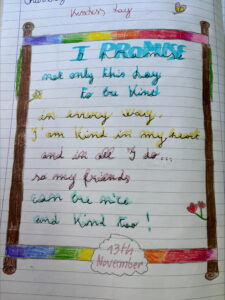 Kindness day
I PROMISE
not only this day
to be kind
in every way.
I am kind in my heart
and in all I do...
so my friends
can be nice
and kind too!
13th
November